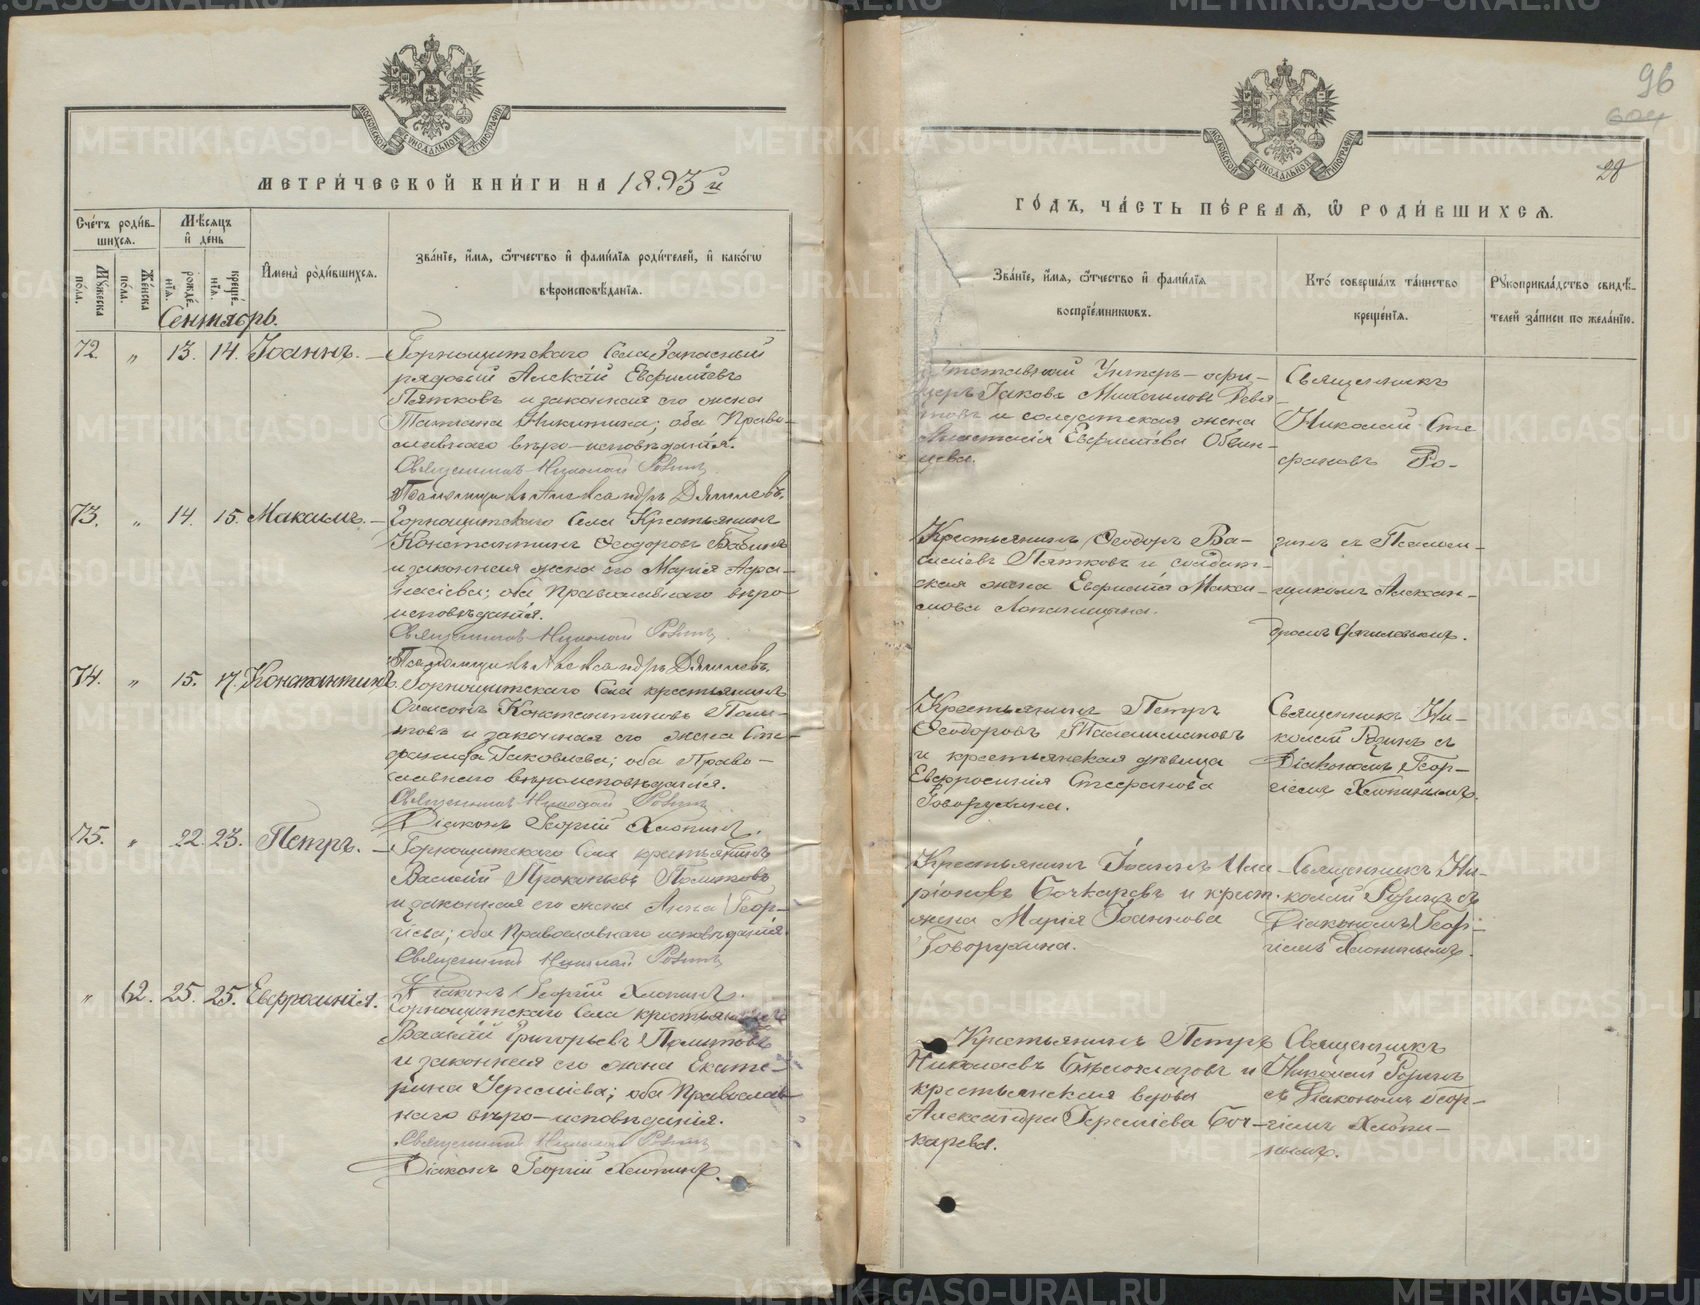 МОСКОВСКОЙ СѴНОДАЛЬНОЙ ТИПОГРАФІИ
МЕТРИ́ЧЕСКОЙ КНИ́ГИ НА 1893 й
Сче́тъ роди́в-
шихся.
Мѣ́сяцъ
и҆ де́нь
Мꙋ́жеска
по́ла.
Же́нска
по́ла.
рожде́-
нїя.
креще́-
нїя.
И҆мена̀ роди́вшихся.
Зва́нїе, и҆́мя, ѻ҆́тчество и҆ фами́лїя роди́телей, и҆ како́гѡ
вѣроисповѣ́данїя.
Сентябрь.
72. " 13. 14. Іоаннъ. — Горнощитскаго Села Запасный
рядовый Алексій Евфиміевъ
Пятковъ и законная его жена
Татіана Никитина; оба Право-
славнаго вѣро-исповѣданія.
Священникъ Николай Розинъ
Псаломщикъ Александръ
73. " 14. 15. Максимъ. — Горнощитскаго Села Крестьянинъ
Константинъ Ѳеодоровъ Бабинъ
и законная жена его Марія Аѳа-
насіева; оба Православнаго вѣро
исповѣданія.
Священникъ Николай Розинъ
Псаломщикъ Александръ
74. " 15. 17. Константинъ. Горнощитскаго Села крестьянинъ
Константиновъ
и законная его жена Сте-
фанида Іаковлева; оба Право-
славнаго вѣроисповѣданія.
Священникъ Николай Розинъ
Діаконъ Георгій Хлопинъ.
75. " 22. 23. Петръ. — Горнощитскаго Села крестьянинъ
Василій Прокопьевъ
и законная его жена Анна Геор-
гіева; оба Православнаго исповѣданія.
Священникъ Николай Розинъ
Діаконъ Георгій Хлопинъ.
" 62. 25. 25. Евфросинія. Горнощитскаго Села крестьянинъ
Василій Григорьевъ
и законная его жена Екате-
рина Іереміева; оба Православ-
наго вѣро-исповѣданія.
Священникъ Николай Розинъ
Діаконъ Георгій Хлопинъ.
96
28
МОСКОВСКОЙ СѴНОДАЛЬНОЙ ТИПОГРАФІИ
ГО́ДЪ, ЧА́СТЬ ПЕ́РВАЯ, Ѡ҆ РОДИ́ВШИХСЯ.
Зва́нїе, и҆́мя, ѻ҆́тчество и҆ фами́лїя
воспрїе́мникѡвъ.
Кто̀ соверша́лъ та́инство
креще́нїя.
Рꙋкоприкла́дство свидѣ́-
телей за́писи по жела́нїю.
Отставный Унтеръ-офи-
церъ Іаковъ Михаиловъ
и солдатская жена
Анастасія Евфиміева Обвин-
цева.
Священникъ
Николай Сте
фановъ Ро-
Крестьянинъ Ѳеодоръ Ва-
сильевъ Пятковъ и солдат-
ская жена Евфимія Макси-
мова Лопатицына.
зинъ съ Псалом-
щикомъ Алексан-
дромъ
Крестьянинъ Петръ
Ѳеодоровъ Талашмановъ
и крестьянская дѣвица
Евфросинія Стефанова
Говорухина.
Священникъ Ни-
колай Розинъ съ
Діакономъ Геор-
гіемъ Хлопинымъ.
Крестьянинъ Іоаннъ Ила-
ріоновъ Бочкаревъ и крест.
жена Марія Іоаннова
Говорухина.
Священникъ Ни-
колай Розинъ съ
Діакономъ Геор-
гіемъ Хлопинымъ.
Крестьянинъ Петръ
Николаевъ Бѣлоглазовъ и
крестьянская вдова
Александра Іереміева Боч-
карева.
Священникъ
Николай Розинъ
съ Діакономъ Геор-
гіемъ Хлопи-
нымъ.
METRIKI.GASO-URAL.RU